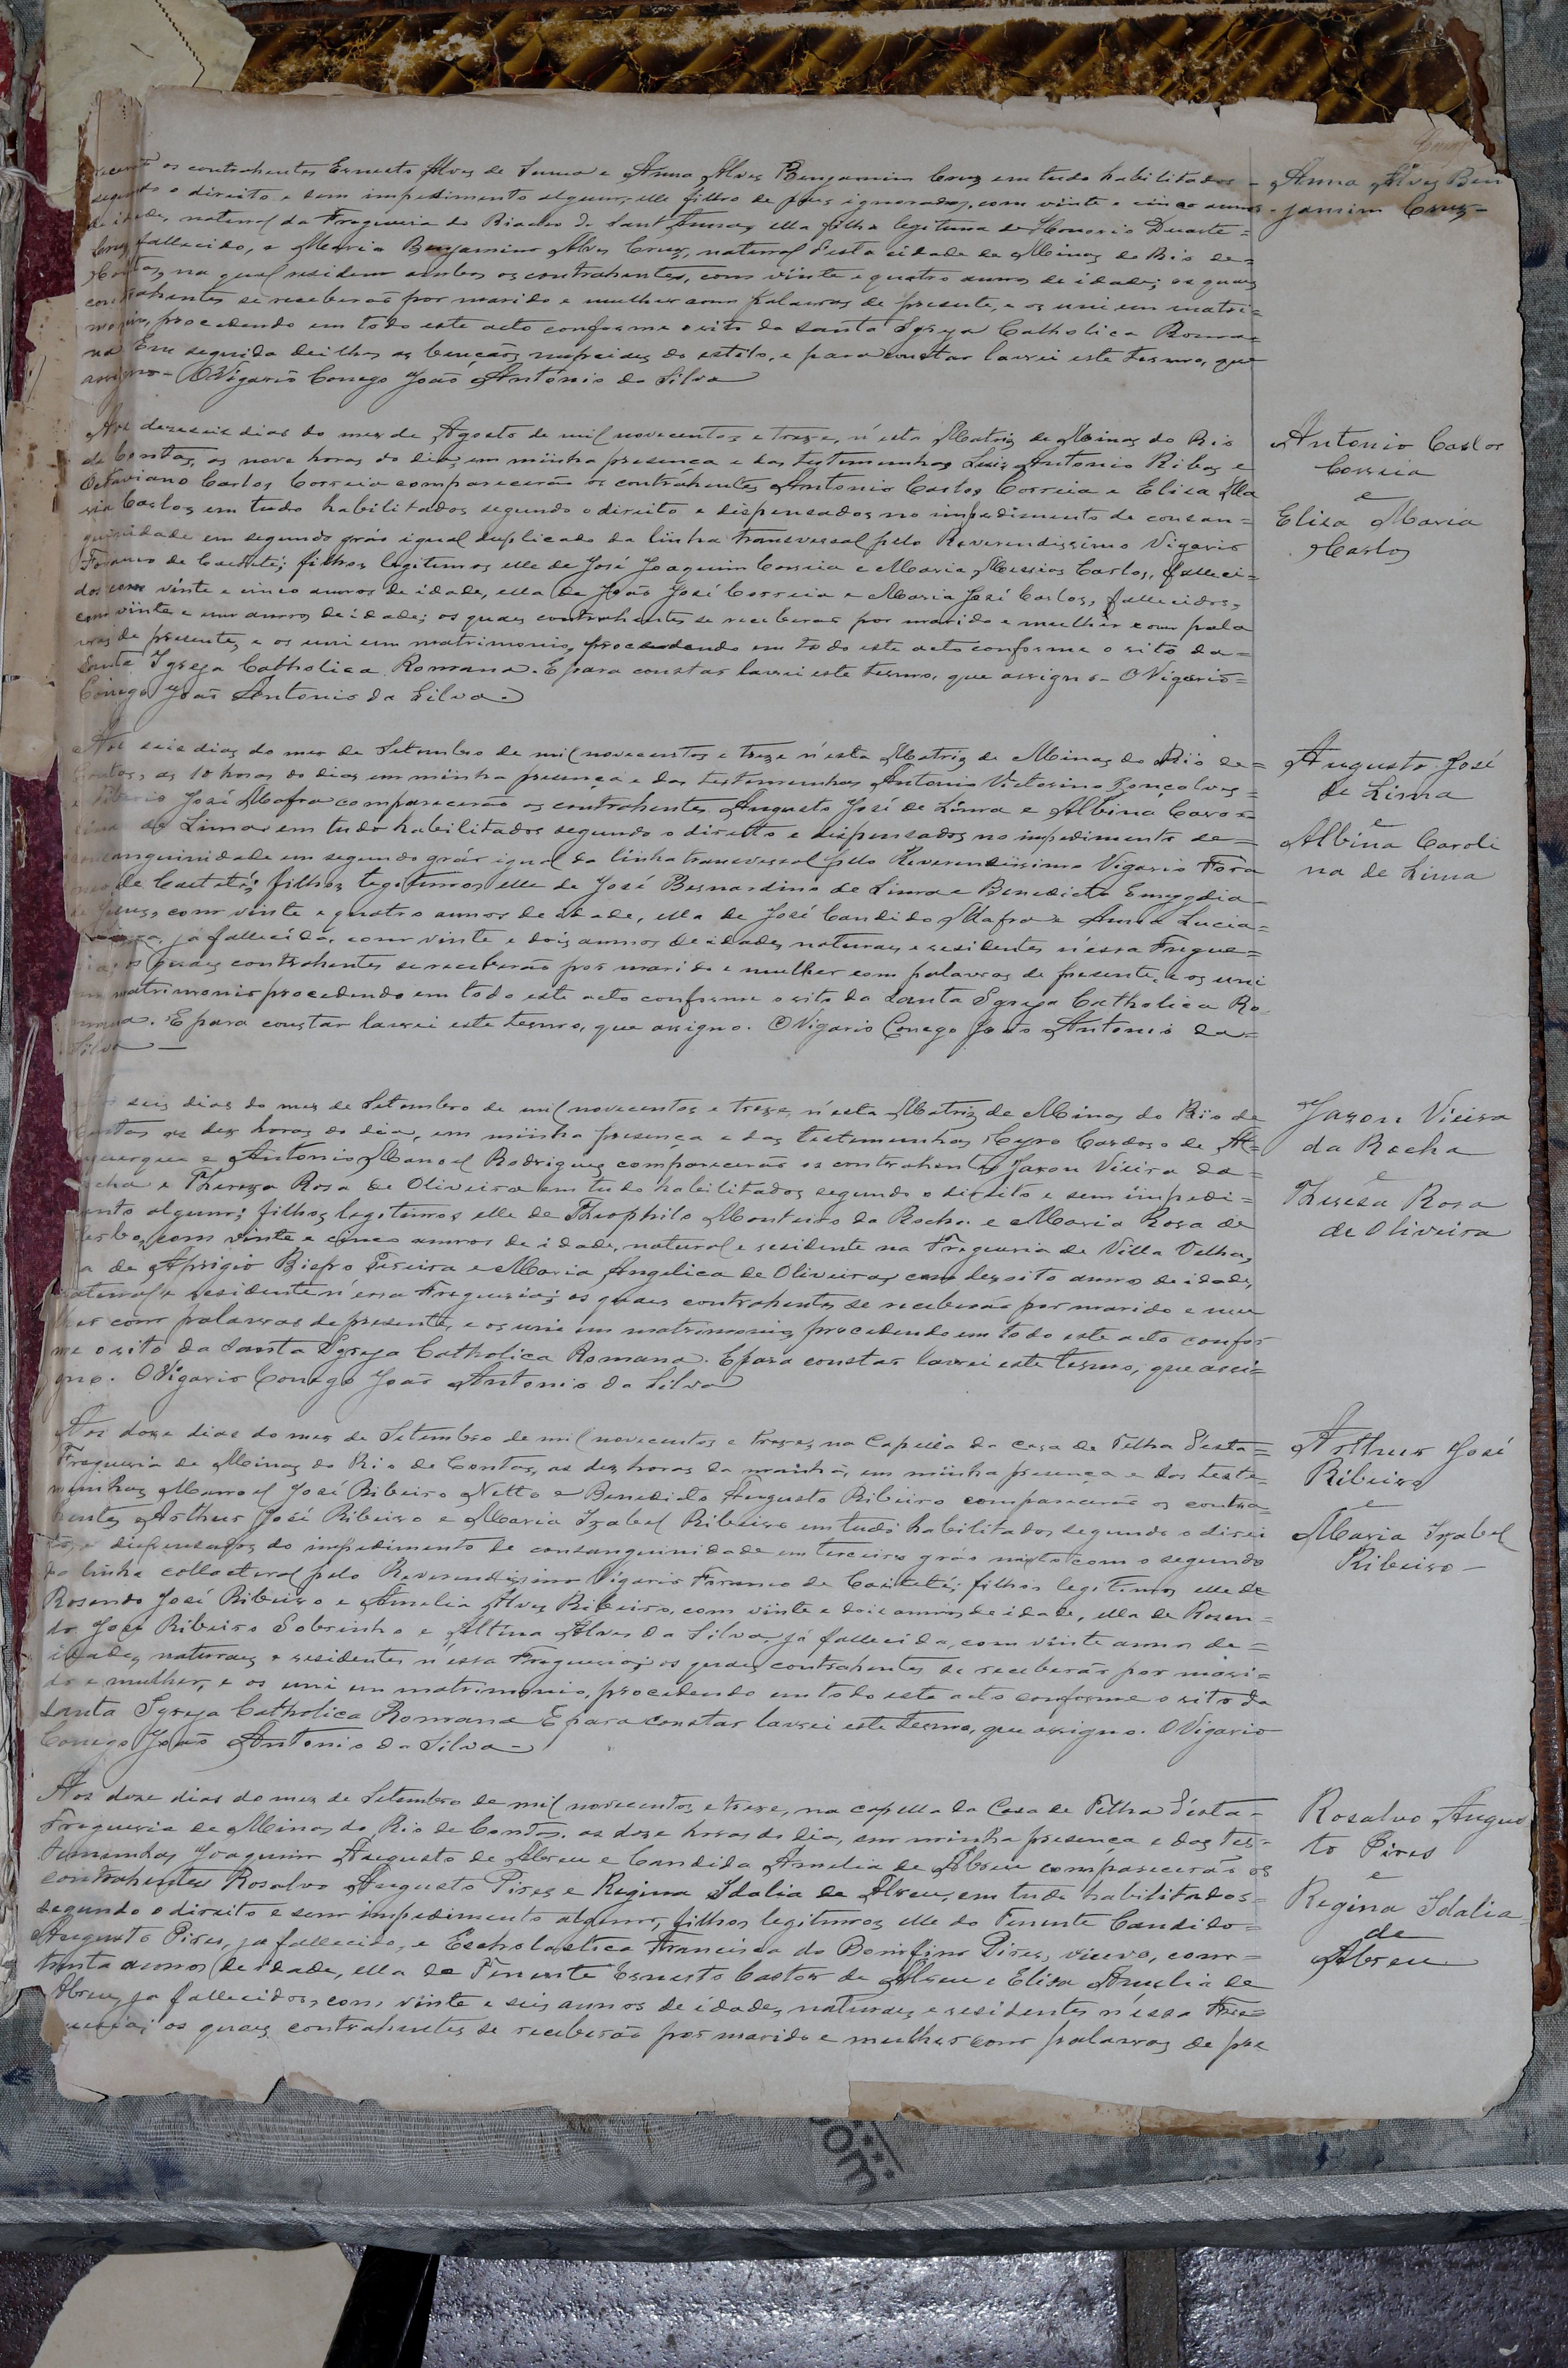 os contrahentes Ernesto Alves de Souza e Anna Alves Benjamim Cruz em tudo habilitados
segundo o direito e sem impedimento algum, elle filho de paes ignorados, com vinte e cinco annos
de idade, natural da Freguesia do Riacho de Sant'Anna, ella filha legitima de Honorio Duarte
Cruz, fallecido, e Maria Benjamino Alves Cruz, natural desta cidade de Minas do Rio de
Contas, na qual residem ambos os contrahentes, com vinte e quatro annos de idade; os quaes
contrahentes se receberão por marido e mulher com palavras de presente, e os uni em matri=
monio, procedendo em todo este acto conforme o rito da Santa Igreja Catholica Roma=
na Em seguida dei lhes as bençãos nupciaes do estilo, e para constar lavrei este termo, que
assigno - O Vigario Conego João Antonio da Silva
Anna Alves Ben
jamim Cruz -
Aos dezeseis dias do mez de Agosto de mil novecentos e treze, n'esta Matriz de Minas do Rio
de Contas, as nove horas do dia, em minha presença e das testemunhas Luiz Antonio Ribas e
Octaviano Carlos Correia comparecerão os contrahentes Antonio Carlos Correia e Elisa Ma
ria Carlos em tudo habilitados segundo o direito e dispensados no impedimento de consan=
guinidade em segundo gráo igual duplicado da linha transversal pelo Reverendissimo Vigario
Foraneo de Caetité; filhos legitimos elle de José Joaquim Correia e Maria Messias Carlos, falleci=
dos com vinte e cinco annos de idade, ella de João José Correia e Maria José Carlos, fallecidos,
com vinte e um annos de idade; os quaes contrahentes se receberão por marido e mulher com pala
vras de presente, e os uni em matrimonio, procedendo em todo este acto conforme o rito da=
Santa Igreja Catholica Romana. E para constar lavrei este termo, que assigno - O Vigario=
Conego João Antonio da Silva.
Antonio Carlos
Correia
e
Elisa Maria
Carlos
Aos seis dias do mez de Setembro de mil novecentos e treze n'esta Matriz de Minas do Rio de=
Contas, as 10 horas do dia, em minha presença e das testemunhas Antonio Victorino Gonçalves=
e José Mafra comparecerão os contrahentes Augusto José de Lima e Albina Caro=
lina de Lima em tudo habilitados segundo o direito e dispensados no impedimento de=
consanguinidade em segundo gráo igual da linha transversal pelo Reverendissimo Vigario Fora
neo de Caetité; filhos legitimos elle de José Bernardino de Lima e Benedicta Emygdia
de Jesus, com vinte e quatro annos de idade, ella de José Candido Mafra e Anna Lucia=
já fallecida, com vinte e dois annos de idade, naturaes e residentes n'essa Fregue=
sia; os quaes contrahentes se receberão por marido e mulher com palavras de presente, e os uni
em matrimonio procedendo em todo este acto conforme o rito da Santa Egreja Catholica Ro
mana. E para constar lavrei este termo, que assigno. O Vigario Conego João Antonio da=
Silva —
Augusto José
de Lima
e
Albina Caroli
na de Lima
Aos seis dias do mez de Setembro de mil novecentos e treze, n'esta Matriz de Minas do Rio de
Contas as dez horas do dia, em minha presença e das testemunhas Cyro Cardoso de Al=
buquerque e Antonio Manoel Rodrigues comparecerão os contrahentes Jason Vieira da=
Rocha e Thereza Rosa de Oliveira em tudo habilitados segundo o direito e sem impedi=
mento algum; filhos legitimos elle de Theophilo Monteiro da Rocha e Maria Rosa de
com vinte e cinco annos de idade, natural e residente na Freguesia de Villa Velha,
ella de Aprigio Pereira e Maria Angelica de Oliveira, com dezoito annos de idade,
natural e residente n'essa Freguesia; os quaes contrahentes se receberão por marido e mu
lher com palavras de presente, e os uni em matrimonio, procedendo em todo este acto confor
me o rito da Santa Egreja Catholica Romana. E para constar lavrei este termo, que assi=
gno. O Vigario Conego João Antonio da Silva
Jason Vieira
da Rocha
e
Thereza Rosa
de Oliveira
Aos doze dias do mez de Setembro de mil novecentos e treze, na Capella da Casa de Telha d'esta=
Freguesia de Minas do Rio de Contas, as dez horas da manhã, em minha presença e das teste=
munhas Manoel José Ribeiro Netto e Benedicto Augusto Ribeiro comparecerão os contra
hentes Arthur José Ribeiro e Maria Izabel Ribeiro em tudo habilitados segundo o direi
to, e dispensados do impedimento de consanguinidade em terceiro gráo mixto com o segundo
da linha collateral pelo Reverendissimo Vigario Foraneo de Caiteté; filhos legitimos elle de
Rosendo José Ribeiro e Amelia Alves Ribeiro, com vinte e dois annos de idade, ella de Rosen=
do José Ribeiro Sobrinho e Altina Alves da Silva, já fallecida, com vinte annos de=
idade, naturaes e residentes n'essa Freguesia; os quaes contrahentes se receberão por mari=
do e mulher, e os uni em matrimonio, procedendo em todo este acto conforme o rito da
Santa Igreja Catholica Romana E para constar lavrei este termo, que assigno. O Vigario
Conego João Antonio da Silva -
Arthur José
Ribeiro
e
Maria Izabel
Ribeiro -
Aos doze dias do mez de Setembro de mil novecentos e treze, na capella da Casa de Telha d'esta=
Freguesia de Minas do Rio de Contas, as doze horas do dia, em minha presença e das tes=
temunhas Joaquim Augusto de Abreu e Candida Amelia de Abreu comparecerão os
contrahentes Rosalvo Augusto Pires e Regina Idalia de Abreu, em tudo habilitados=
segundo o direito e sem impedimento algum, filhos legitimos elle do Tenente Candido=
Augusto Pires, já fallecido, e Escholastica Francisca do Bomfim Pires, viuvo, com=
trinta annos de idade, ella de Tenente Ernesto Castor de Abreu e Elisa Amelia de
Abreu, já fallecidos, com vinte e seis annos de idade, naturaes e residentes n'essa Fre=
guesia; os quaes contrahentes se receberão por marido e mulher com palavras de pre
Rosalvo Augus
to Pires
e
Regina Idalia
de
Abreu